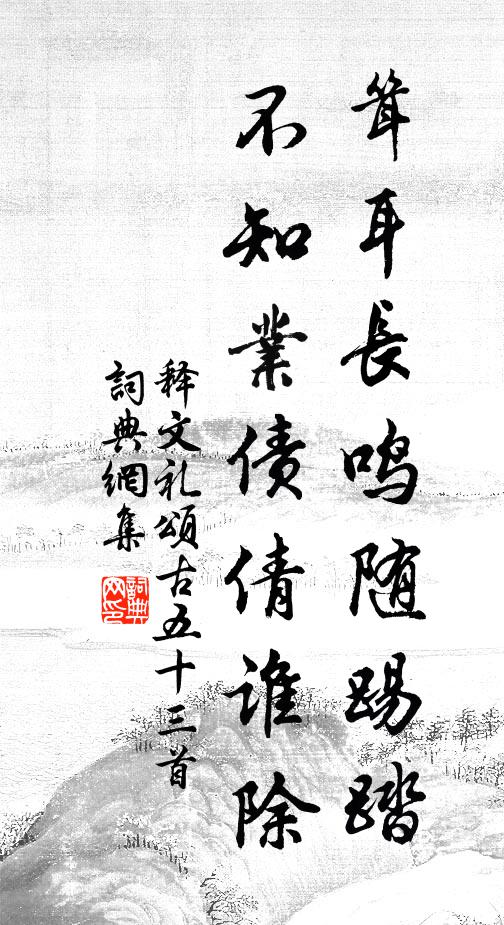 耸耳长鸣随踢踏
不知業债倩谁除
释文礼颂古五十三首
詞典網集
詞典网印